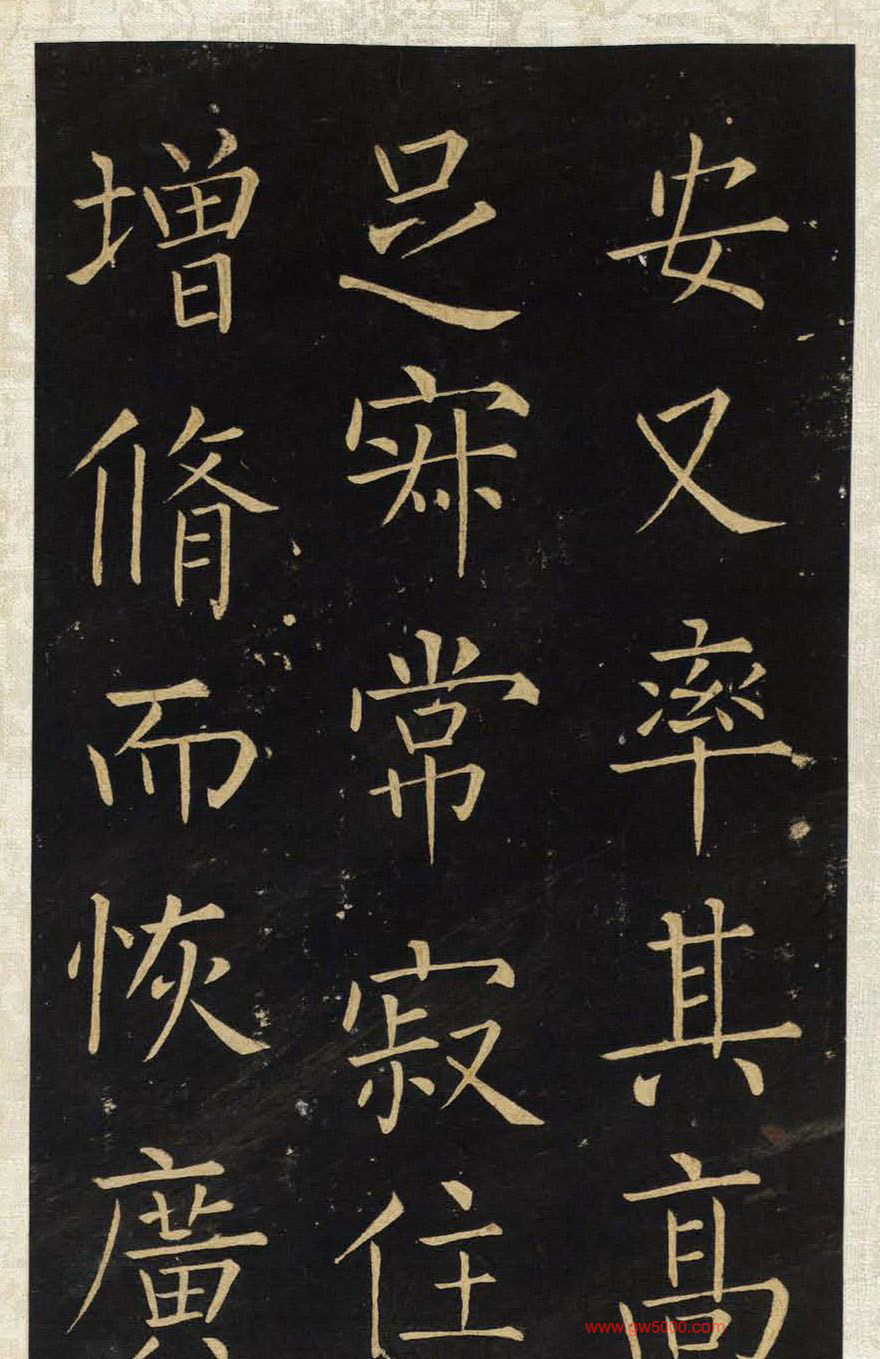 安又率其高
足常寂住
增脩而恢廣
www.gw5000.com